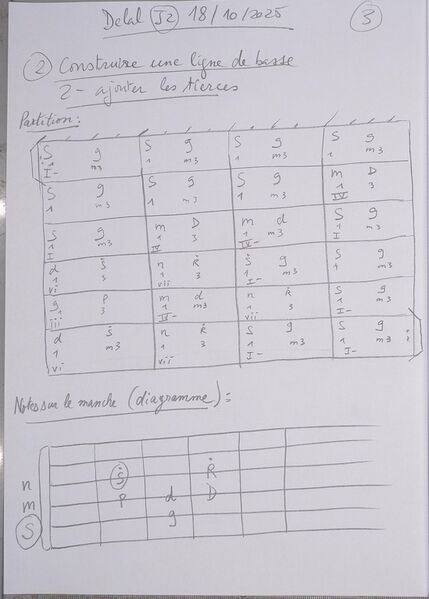 Delal J2 18/10/2025 3
2 Construire une ligne de basse
2 - ajouter les tierces
Partition:
S g S g S g S g
1 m3 1 m3 1 m3 1 m3
I-
S g S g S g m D
1 m3 1 m3 1 m3 1 3
IV
S g m D m d S g
1 m3 1 3 1 m3 1 m3
I IV IV- I
d Ṡ n Ṙ Ṡ g S g
1 3 1 3 1 m3 1 m3
vi vii I-
g P m d n Ṙ S g
1 3 1 m3 1 3 1 m3
iii IV- vii I-
d Ṡ n Ṙ S g S g
1 m3 1 3 1 m3 1 m3
vi vii I- I-
Notes sur le manche (diagramme) =
Ṡ Ṙ
n
m P d D
S g